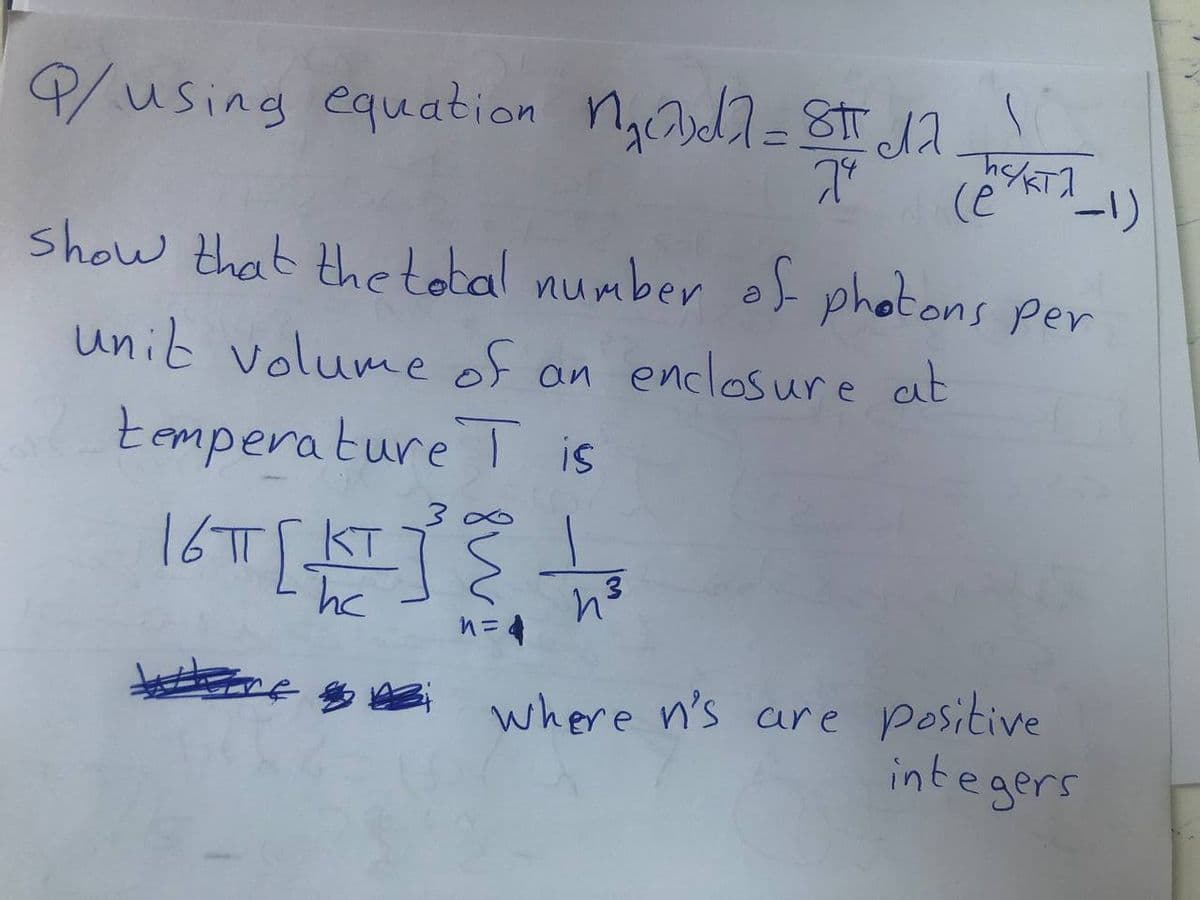 Q/ using equation n_λ(λ)dλ = 8π/λ⁴ dλ 1/(e^(hc/KTλ) -1)
show that the total number of photons per
unit volume of an enclosure at
temperature T is
16π [KT/hc]³ ∑_{n=1}^{∞} 1/n³
where n's are positive
integers